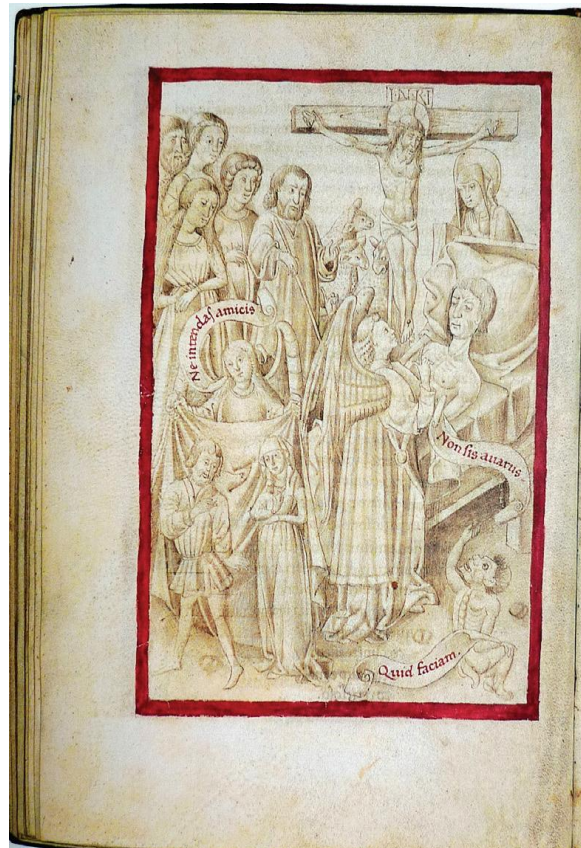 I·N·R·I
Ne intendas amicis
Non sis avarus
Quid faciam.